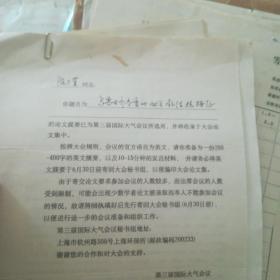 同志：
你题目为
的论文摘要已为第三届国际大气会议所选用，并将收录于大会论
文集中。
按照大会规则，会议的官方语言为英文，请你准备为一份200
-400字的英文摘要，以及10-15分钟的发言材料，并请务必将英
文摘要于6月30日前寄回大会秘书组，以便编印大会论文集。
由于寄交论文要求参加会议的人数较多，而出席会议的人数
受到限制，可能会出现少数学者论文被录取而本人不能参加会议
的情况，故请将回执填好后先行寄回大会秘书组（6月30日前），
以便进行进一步的会议准备和组织工作。
第三届国际大气会议秘书组地址：
上海市钦州路508号上海环保所（邮政编码200233）
谢谢您的合作和对大会的支持。
第三届国际大气会议